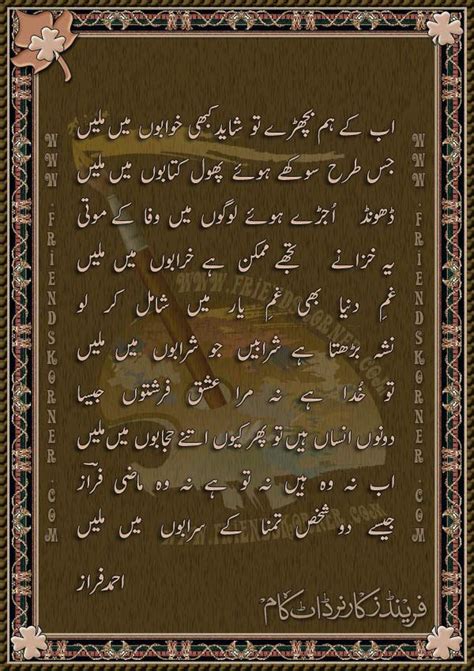 اب کے ہم بچھڑے تو شاید کبھی خوابوں میں ملیں
جس طرح سوکھے ہوئے پھول کتابوں میں ملیں
ڈھونڈ اُجڑے ہوئے لوگوں میں وفا کے موتی
یہ خزانے تجھے ممکن ہے خرابوں میں ملیں
غمِ دنیا بھی غمِ یار میں شامل کر لو
نشہ بڑھتا ہے شرابیں جو شرابوں میں ملیں
تو خُدا ہے نہ مرا عشق فرشتوں جیسا
دونوں انساں ہیں تو پھر کیوں اتنے حجابوں میں ملیں
اب نہ وہ ہیں نہ تو ہے نہ وہ ماضی فرازؔ
جیسے دو شخص تمنا کے سرابوں میں ملیں
احمد فراز
فرینڈز کارنر ڈاٹ کام
WWW.FRIENDSKORNER.COM
WWW.FRIENDSKORNER.COM
WWW.FRIENDSKORNER.COM
WWW.FRIENDSKORNER.COM